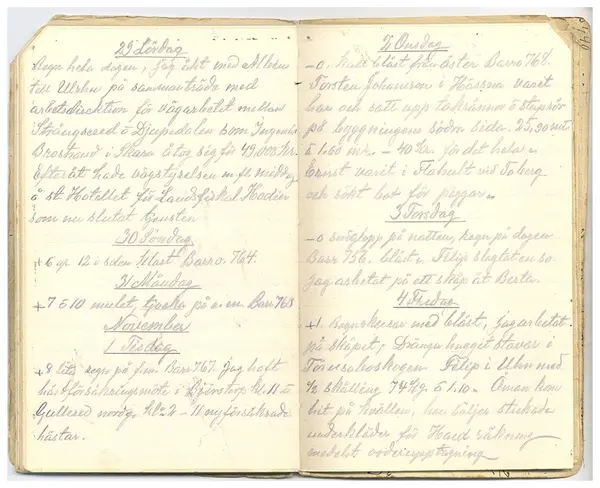 29 Lördag
Regn hela dagen, jag åkt med Albin
till Ulrhn på sammanträde med
arbetsdirektion för vägarbetet mellan
Strängsered o Djupedalen som Ingeniör
Brostrand i Skara åtog sig för 49,000 kr.
Efteråt hade vägstyrelsen m. fl. middag
å st. Hotellet för Landsfiskal
som nu slutat tjensten
30 Söndag
+6 gr. 12 i s den blåst Barr o. 764.
31 Måndag
+7 å 10 mulet, tjocka på e. m. Barr 768
November
1 Tisdag
+8 litet regn på f.m. Barr 767. jag haft
hästförsäkringsmöte i Djurstorp kl. 11 o
Gullered nordg. kl. 2 – 11 ny försäkrade
hästar.
2 Onsdag
–0. kall blåst från öster Barr o 764.
Torsten Johansson i varit
här och satt upp takränna o stuprör
på byggningens södra sida. 25,90 mtr
å 1.50 mr. – 40 Kr. för det hela
Ernst varit i Flahult vid Toberg
och sökt bot för
3 Torsdag
–0 snöglopp på natten, regn på dagen
Barr 756. blåst. Filip slagtat en so
jag arbetat på ett skåp åt Berta.
4 Fredag
+1. Regnskurar med blåst, jag arbetat
på skåpet; Dräng hugget stavar i
Filip i Ulrhn med
1/2 skålling 74 kg. å 1.10.
hit på kvällen, han säljer stickade
underkläder för räkning
medelst